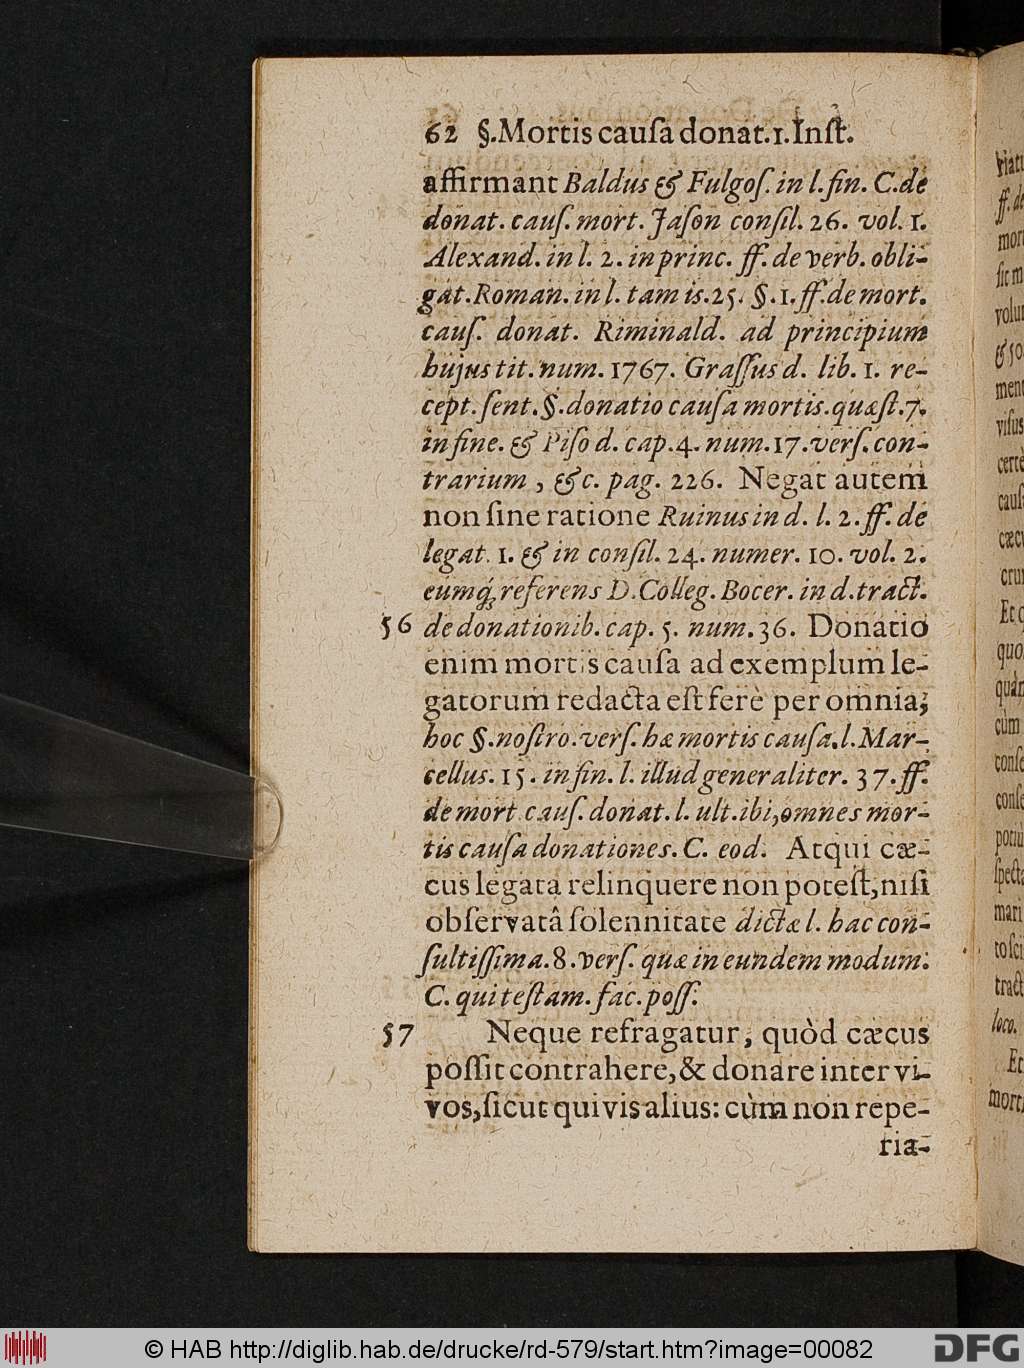 62 §.Mortis cauſa donat.1.Inſt.
affirmant Baldus & Fulgoſ. in l. fin. C. de
donat. cauſ. mort. Jaſon conſil. 26. vol. 1.
Alexand. in l. 2. in princ. ff. de verb. obli-
gat. Roman. in l. tam is. 25. §. 1. ff. de mort.
cauſ. donat. Riminald. ad principium
hujus tit. num. 1767. Graſſus d. lib. 1. re-
cept. ſent. §. donatio cauſa mortis. quæſt. 7.
in fine. & Piſo d. cap. 4. num. 17. verſ. con-
trarium , &c. pag. 226. Negat autem
non ſine ratione Ruinus in d. l. 2. ff. de
legat. 1. & in conſil. 24. numer. 10. vol. 2.
eumq́; referens D. Colleg. Bocer. in d. tract.
56 de donationib. cap. 5. num. 36. Donatio
enim mortis cauſa ad exemplum le-
gatorum redacta eſt ferè per omnia;
hoc §. noſtro. verſ. hæ mortis cauſa. l. Mar-
cellus. 15. in fin. l. illud generaliter. 37. ff.
de mort. cauſ. donat. l. ult. ibi, omnes mor-
tis cauſa donationes. C. eod. Atqui cæ-
cus legata relinquere non poteſt, niſi
obſervatâ ſolennitate dictæ l. hac con-
ſultiſſima. 8. verſ. quæ in eundem modum.
C. qui teſtam. fac. poſſ.
57 Neque refragatur, quòd cæcus
poſſit contrahere, & donare inter vi-
vos, ſicut quivis alius: cùm non repe-
ria-
© HAB http://diglib.hab.de/drucke/rd-579/start.htm?image=00082
DFG